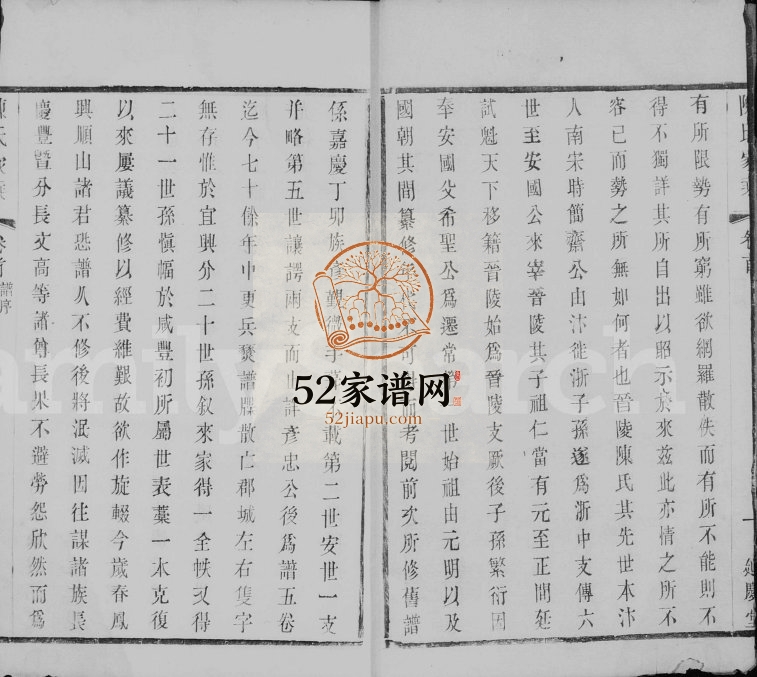 有所限勢有所窮雖欲網羅散佚而有所不能則不
得不獨詳其所自出以昭示於來茲此亦情之所不
容已而勢之所無如何者也晉陵陳氏其先世本汴
人南宋時簡齋公由汴徙浙子孫遂爲浙中支傳六
世至安國公來宰晉陵其子祖仁當有元至正間延
試魁天下移籍晉陵始爲晉陵支厥後子孫繁衍因
奉安國父希聖公爲遷常 世始祖由元明以及
國朝其間纂修 可 考閱前次所修舊譜
係嘉慶丁卯族 載第二世安世一支
并略第五世讓諤兩支而 詳彥忠公後爲譜五卷
迄今七十餘年中更兵燹譜牒散亡郡城左右隻字
無存惟於宜興分二十世孫叙來家得一全帙又得
二十一世孫愼幅於咸豐初所屬世表藁一本克復
以來屢議纂修以經費維艱故欲作旋輟今歲春鳳
興順山諸君恐譜久不修後將泯滅因往謀諸族長
慶豐暨分長文高等諸尊長果不避勞怨欣然而爲
陳氏家乘
卷首
譜序
一
52家谱网
52jiapu.com